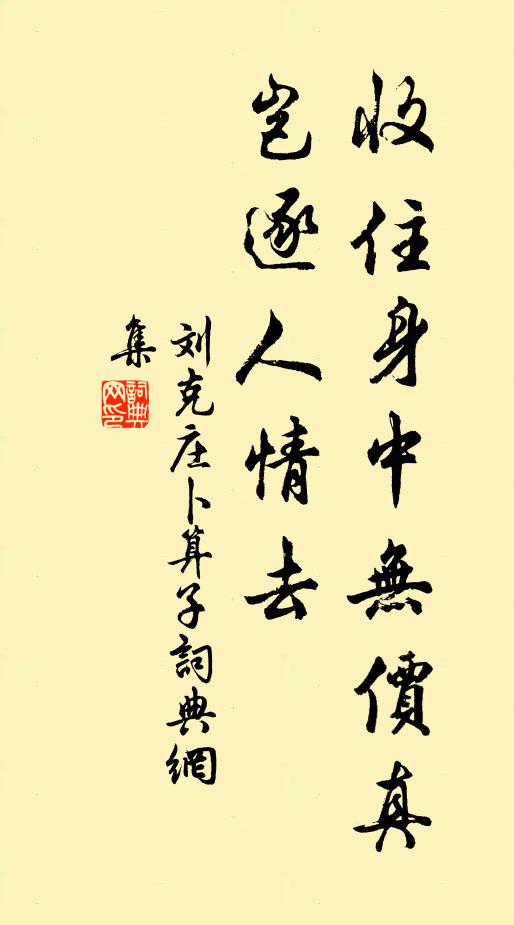 收住身中無價真
岂逐人情去
刘克庄卜算子詞典網
集
詞典
网印